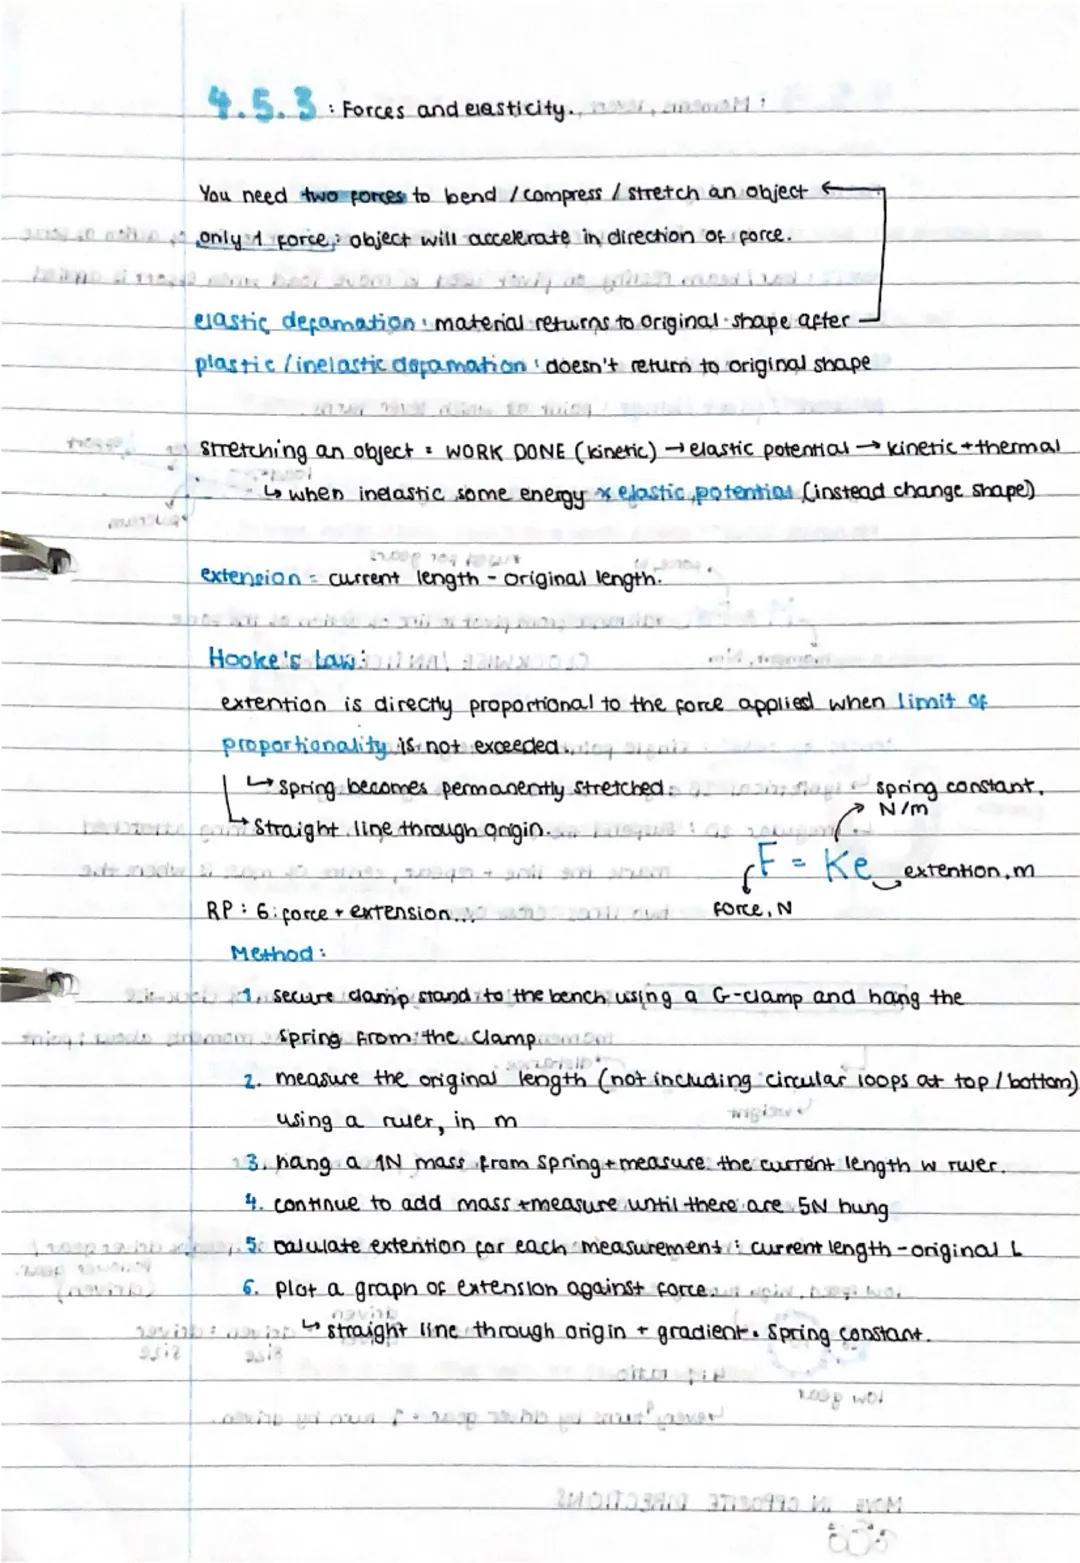 4.5.3 : Forces and elasticity.
You need two forces to bend / compress / stretch an object
only 1 force : object will accelerate in direction of force.
elastic defamation : material returns to original shape after
plastic / inelastic defamation : doesn't return to original shape
stretching an object = WORK DONE (kinetic) → elastic potential → kinetic + thermal
↳ when inelastic some energy x elastic potential (instead change shape)
extension = current length - original length.
Hooke's Law :
extention is directly proportional to the force applied when limit of
proportionality is not exceeded.
↳ spring becomes permanently stretched.
↳ straight line through origin.
spring constant, N/m
F = Ke
extention, m
force, N
RP : 6 : force + extension...
Method :
1. secure clamp stand to the bench using a G-clamp and hang the
spring from the clamp
2. measure the original length (not including circular loops at top / bottom)
using a ruler, in m
3. hang a 1N mass from spring + measure the current length w ruler.
4. continue to add mass + measure until there are 5N hung
5. calulate extention for each measurement : current length - original L
6. plot a graph of extension against force
↳ straight line through origin + gradient = spring constant.